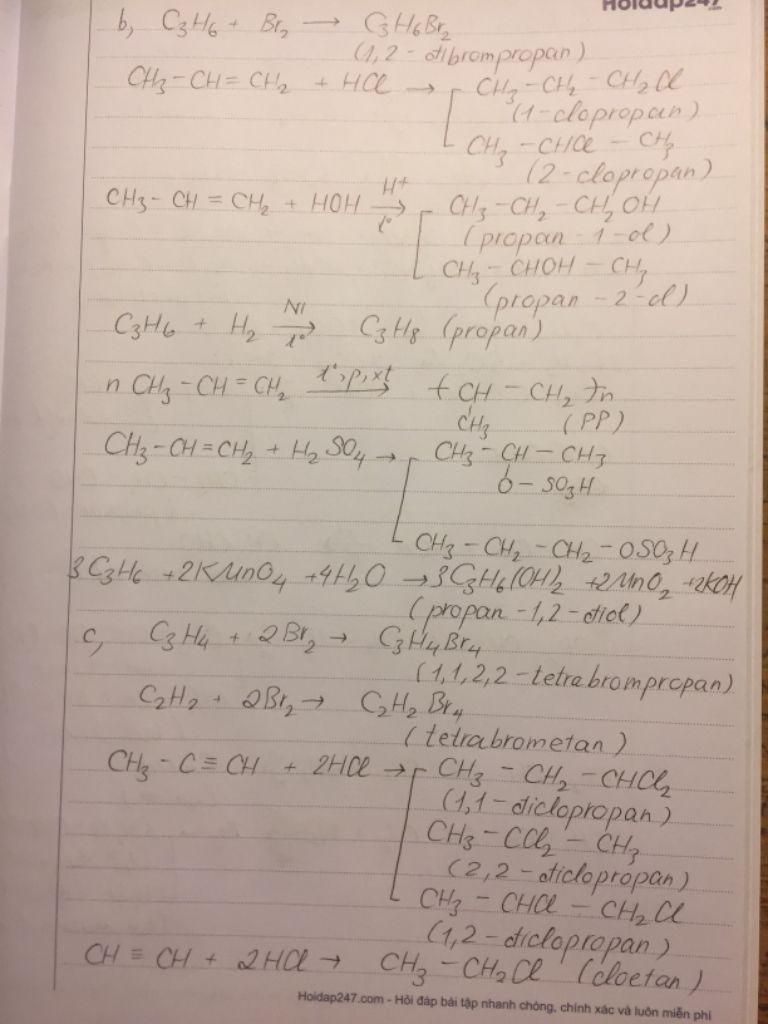 Hoidap247
b, C3H6 + Br2 → C3H6Br2
(1,2 - dibrompropan)
CH3-CH=CH2 + HCl → CH3-CH2-CH2Cl
(1-clopropan)
CH3-CHCl-CH3
(2-clopropan)
CH3-CH=CH2 + HOH H+ t° → CH3-CH2-CH2OH
(propan-1-ol)
CH3-CHOH-CH3
(propan-2-ol)
C3H6 + H2 Ni t° → C3H8 (propan)
n CH3-CH=CH2 t°,p,xt → (CH-CH2)n
CH3 (PP)
CH3-CH=CH2 + H2SO4 → CH3-CH-CH3
O-SO3H
CH3-CH2-CH2-OSO3H
3C3H6 +2KMnO4 +4H2O → 3C3H6(OH)2 +2MnO2 +2KOH
(propan-1,2-diol)
c, C3H4 + 2Br2 → C3H4Br4
(1,1,2,2-tetrabrompropan)
C2H2 + 2Br2 → C2H2Br4
(tetrabrometan)
CH3-C≡CH + 2HCl → CH3-CH2-CHCl2
(1,1-diclopropan)
CH3-CCl2-CH3
(2,2-diclopropan)
CH3-CHCl-CH2Cl
(1,2-diclopropan)
CH≡CH + 2HCl → CH3-CH2Cl (cloetan)
Hoidap247.com - Hỏi đáp bài tập nhanh chóng, chính xác và luôn miễn phí